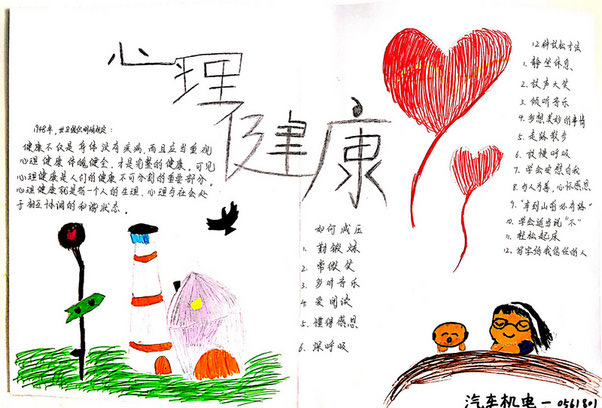 心理
健康
1948年,世卫组织明确规定:
健康不仅是身体没有疾病,而且应当重视
心理健康,伴随健全,才是完整的健康。可见
心理健康是人们的健康不可分割的重要部分。
心理健康就是指一个人的生理、心理与社会处
于相互协调的和谐状态。
如何减压
1. 勤锻炼
2. 常微笑
3. 多听音乐
4. 爱阅读
5. 懂得感恩
6. 深呼吸
12种放松方法
1. 静坐休息
2. 放声大笑
3. 倾听音乐
4. 多想美妙的事情
5. 走路散步
6. 放慢呼吸
7. 学会安慰自我
8. 与人为善,心怀感恩
9. "车到山前必有路"
10. 学会适当说"不"
11. 轻松起床
12. 写字给我信任的人
汽车机电一 0561801